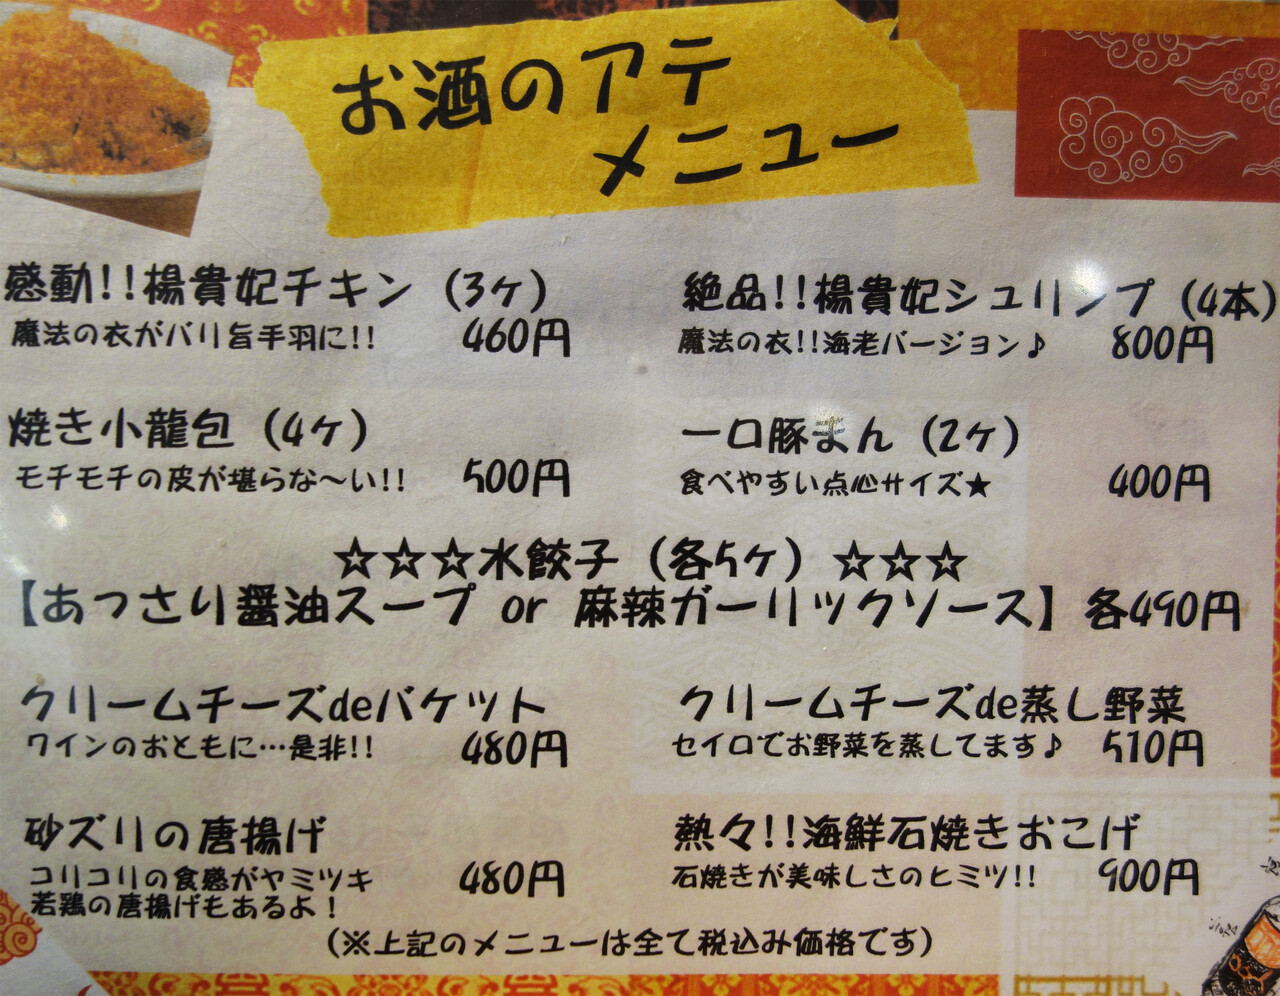 お酒のアテ
メニュー
感動!!楊貴妃チキン (3ヶ)
魔法の衣がバリ旨手羽に!! 460円
絶品!!楊貴妃シュリンプ (4本)
魔法の衣!!海老バージョン♪ 800円
焼き小龍包 (4ヶ)
モチモチの皮が堪らな〜い!! 500円
一口豚まん (2ヶ)
食べやすい点心サイズ★ 400円
☆☆☆水餃子 (各5ヶ) ☆☆☆
【あっさり醤油スープ or 麻辣ガーリックソース】各490円
クリームチーズdeバケット
ワインのおともに…是非!! 480円
クリームチーズde蒸し野菜
セイロでお野菜を蒸してます♪ 510円
砂ズリの唐揚げ
コリコリの食感がヤミツキ 480円
若鶏の唐揚げもあるよ!
熱々!!海鮮石焼きおこげ
石焼きが美味しさのヒミツ!! 900円
(※上記のメニューは全て税込み価格です)